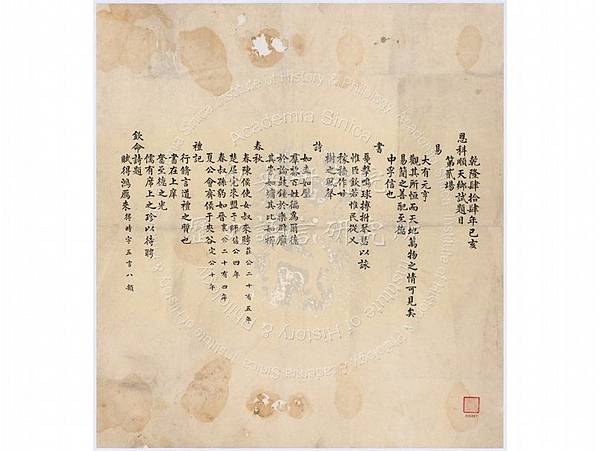 乾隆肆拾肆年己亥
恩科順天鄉試題目
第貳場
易
大有元亨
觀其所恒而天地萬物之情可見矣
易簡之善配至德
中孚信也
書
戛擊鳴球搏拊琴瑟以詠
惟臣欽若惟民從乂
稼穡作甘
樹之風聲
詩
如圭如璧
羣黎百姓徧為爾德
於論鼓鍾於樂辟廱
其崇如墉其比如櫛
春秋
春陳侯使女叔來聘莊公二十有五年
楚屈完來盟于師僖公四年
春叔孫豹如晉襄公二十有四年
夏公會齊侯于夾谷定公十年
禮記
行脩言道禮之質也
書在上庠
奮至德之光
儒有席上之珍以待聘
欽命詩題
賦得鴻雁來得時字五言八韻
Academia Sinica Institute of History & Philology